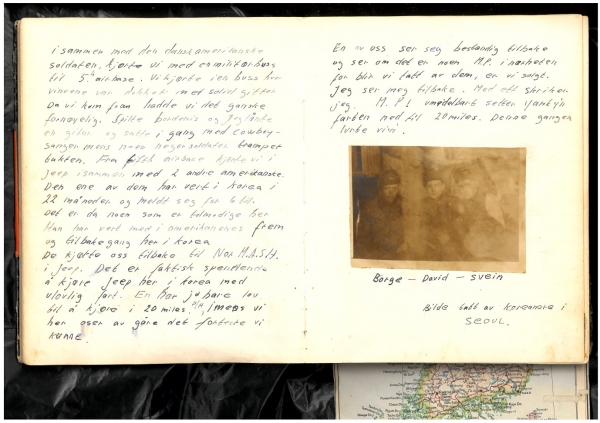 isammen med den danskamerikanske
soldaten, kjørte vi med en militærbuss
til 5th airbase. Vi kjørte i en buss hvor
vinduene var dekket med solid gitter.
Da vi kom fram hadde vi det ganske
fornøyelig. Spilte bordtenis og jeg lånte
en gitar og satte i gang med cowboy-
sanger mens noen negersoldater trampet
takten. Fra fifth airbase kjørte vi i
jeep isammen med 2 andre amerikanske.
Den ene av dem har vert i Korea i
22 måneder og meldt seg for 6 til.
Det er da noen som er tolmodige her
Han har vert med i amerikanenes frem
og tilbakegang her i Korea
De kjørte oss tilbake til Nor.M.A.S.H.
i jeep. Det er faktisk spendende
å kjøre jeep her i Korea med
ulovlig fart. En har jo bare lov
til å kjøre i 20 miles P/H, mens vi
her oser av gåre det forteste vi
kunne.
En av oss ser seg bestandig tilbake
og ser om det er noen M.P. i nærheten
for blir vi tatt av dem, er vi solgt.
Jeg ser meg tilbake. Med ett skriker
jeg. M.P.! umidelbart setter
farten ned til 20 miles. Denne gangen
lurte vi
Børge – David – Svein
Bilde tatt av Koreanere i
SEOUL.